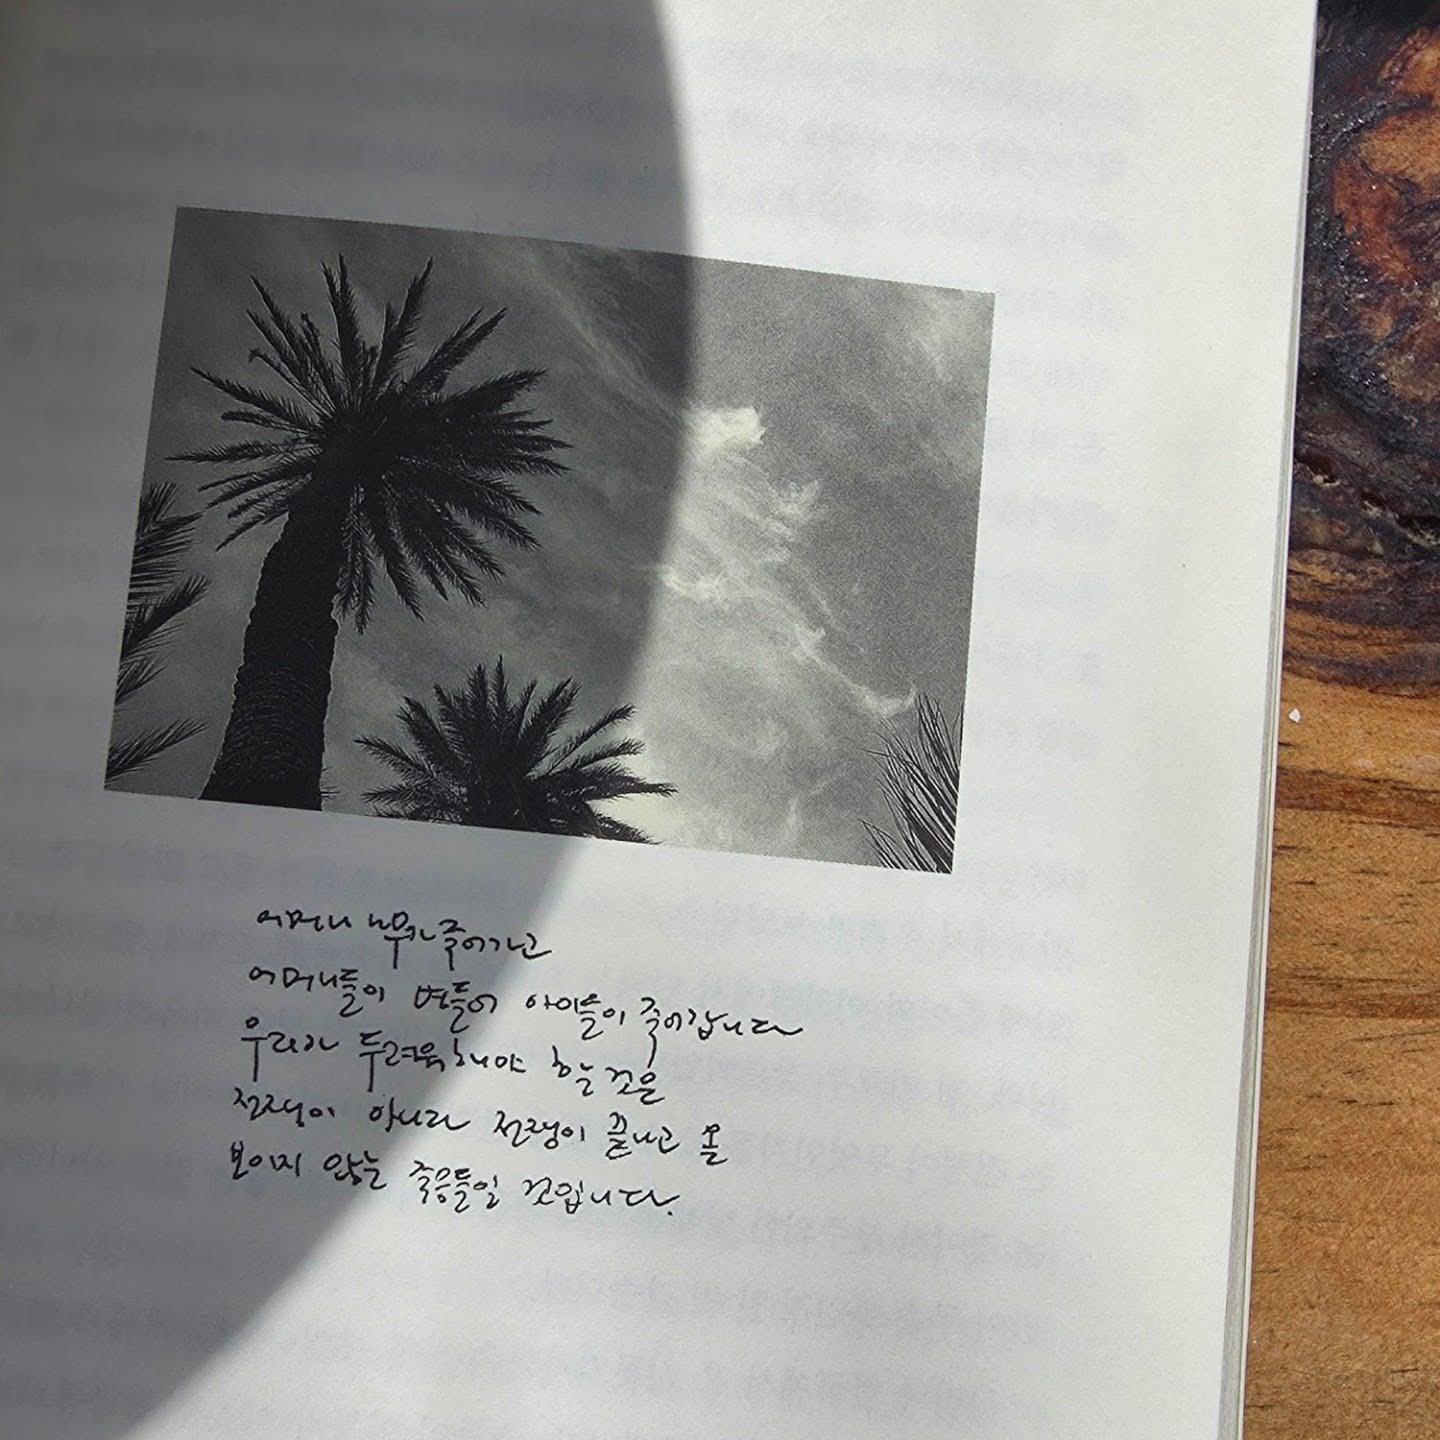 어머니 나무가 죽어가고
어머니들이 병들어 아이들이 죽어갑니다
우리가 두려워해야 할 것은
전쟁이 아니라 전쟁이 끝나고 올
보이지 않는 죽음들일 것입니다.